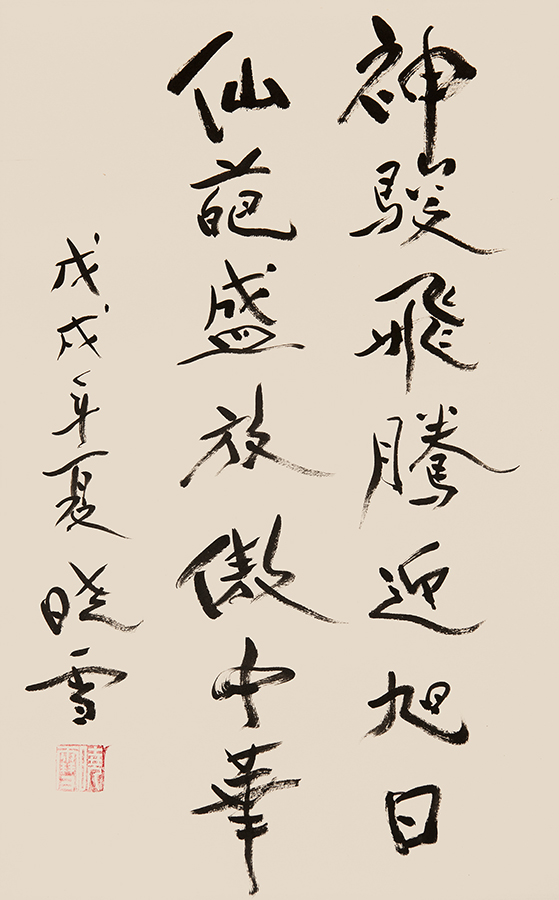 神骏飛騰迎旭日
仙葩盛放傲中華
戊戌年夏 晓雪